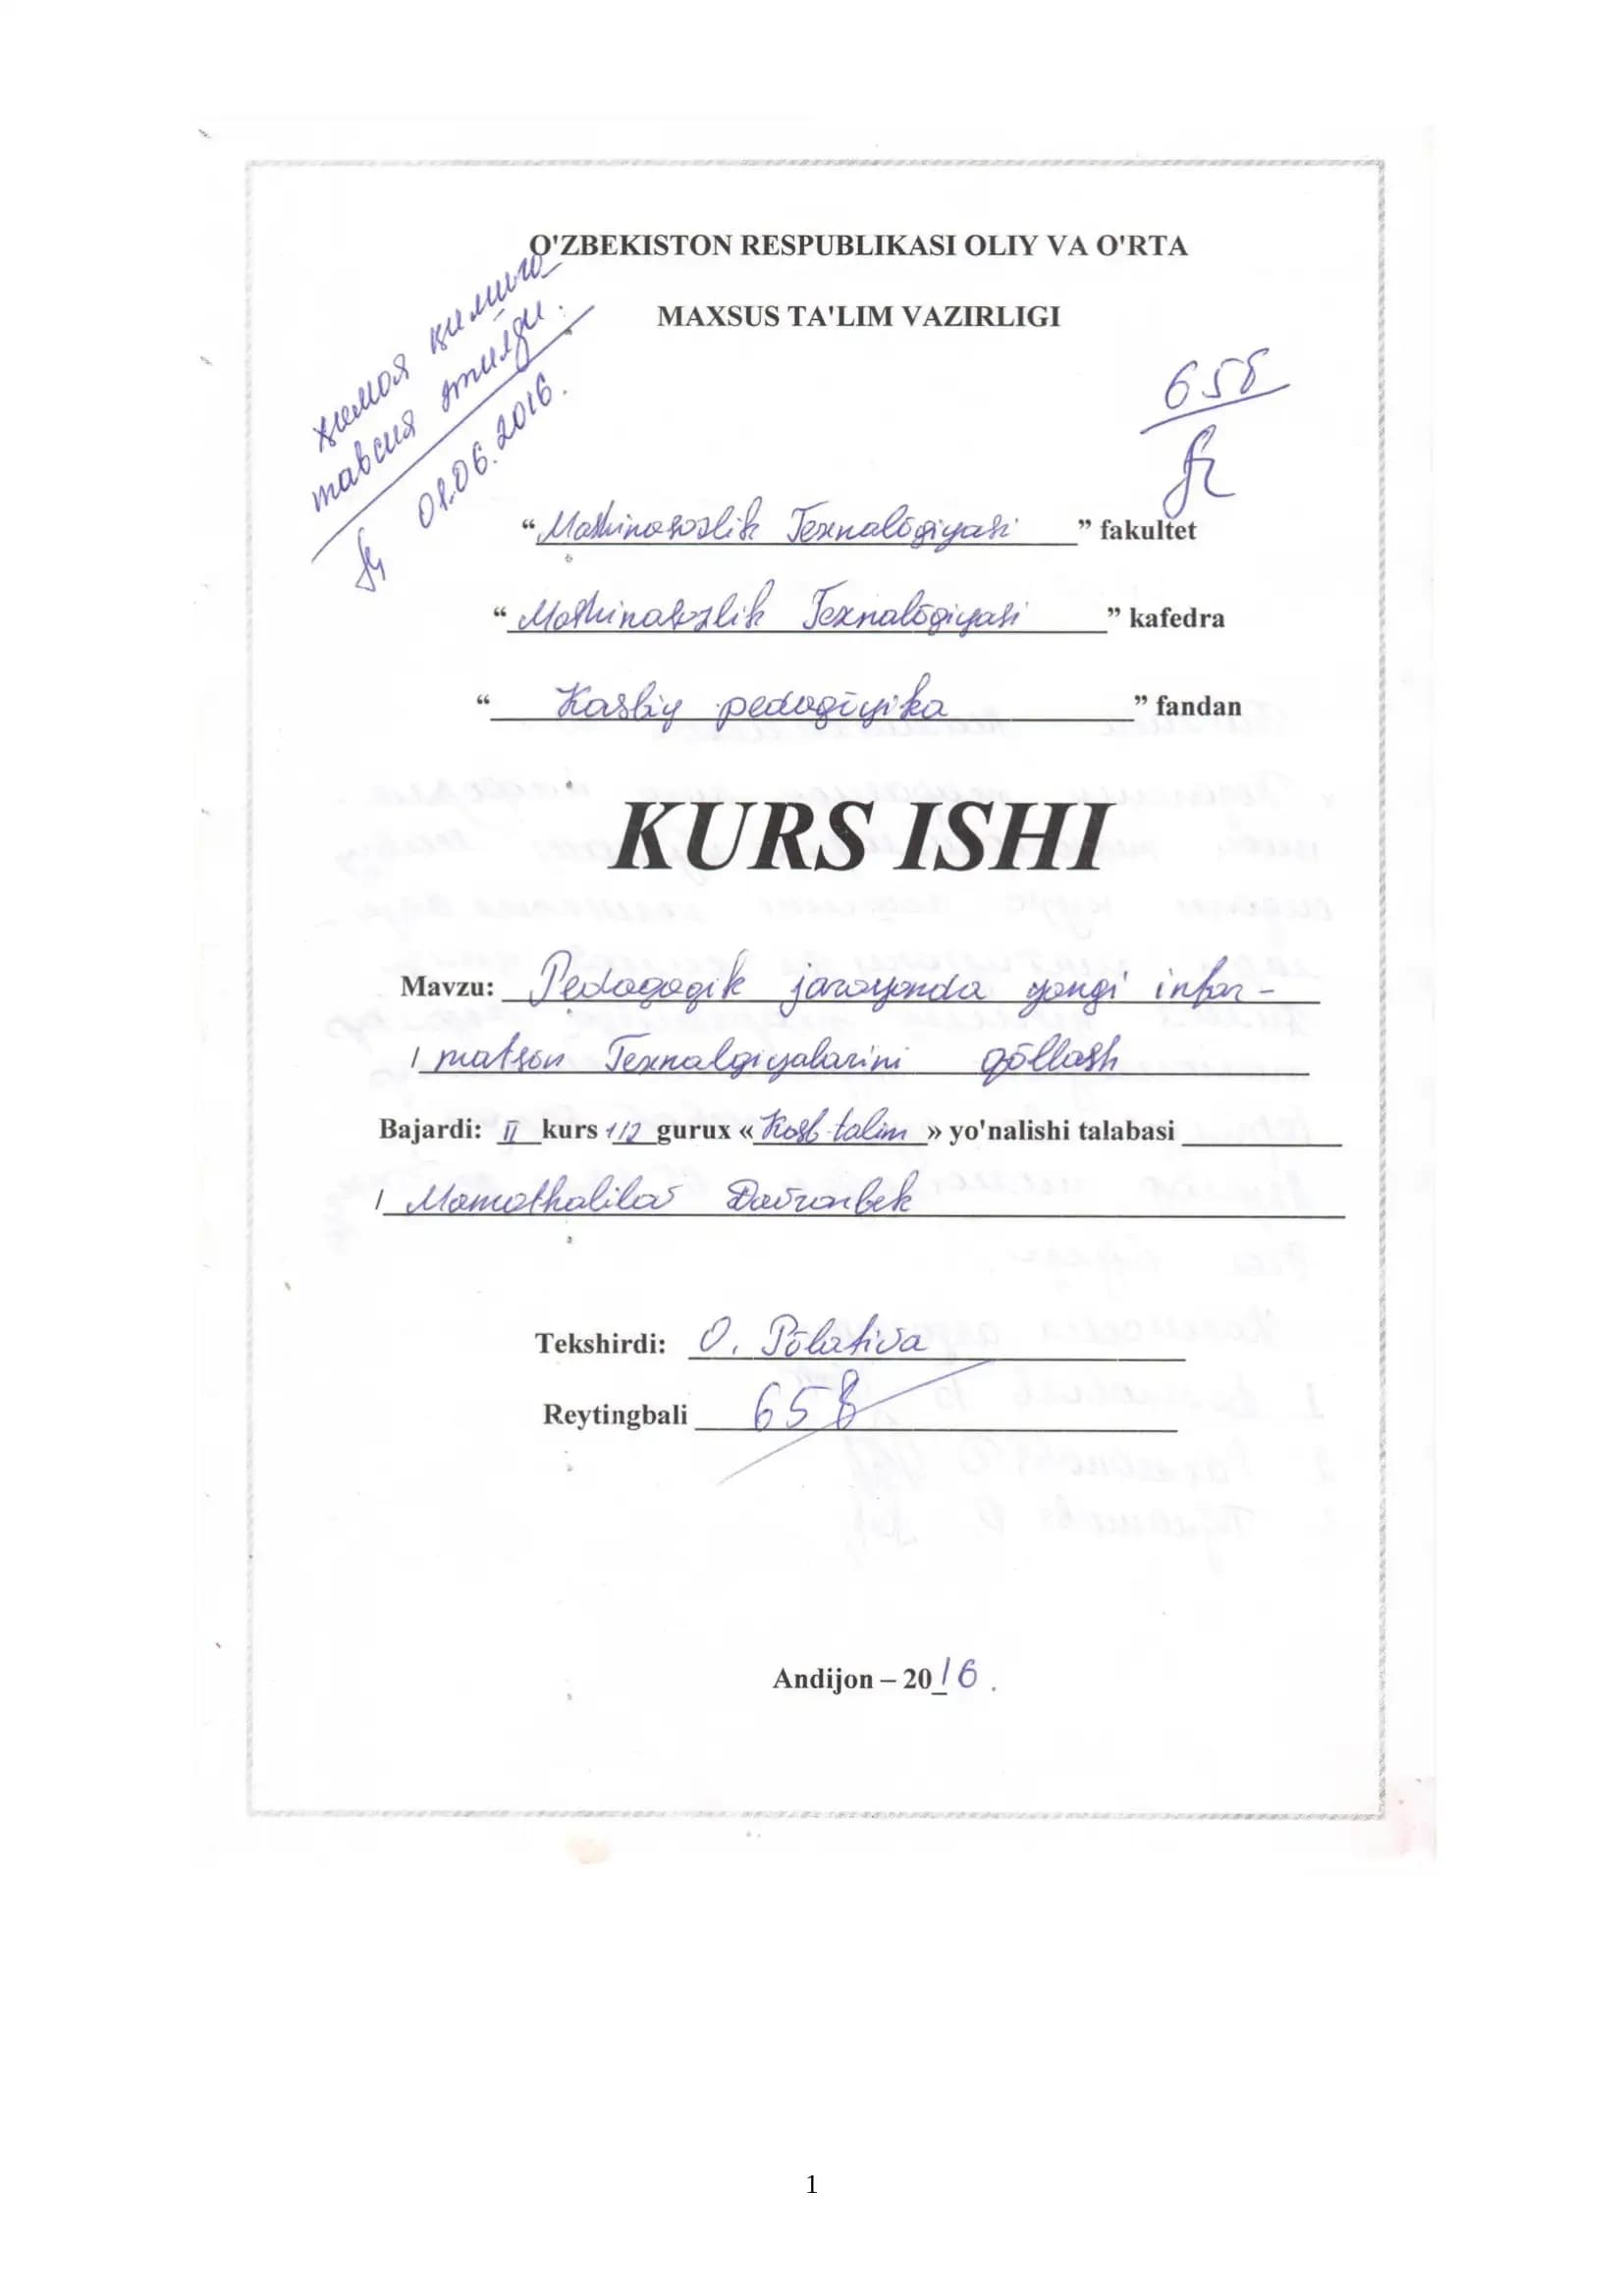 O'ZBEKISTON RESPUBLIKASI OLIY VA O'RTA
MAXSUS TA'LIM VAZIRLIGI
ҳимоя қилишга
тавсия этилди.
01.06.2016.
65б
“Mashinasozlik Texnalōgiyasi” fakultet
“Mashinasozlik Texnalōgiyasi” kafedra
“Kasbiy pedagōgika” fandan
KURS ISHI
Mavzu: Pedagogik jarayonda yangi infor-
matson Texnalgiyalarini qōllash
Bajardi: II kurs 1/2 gurux «Kasb talim» yo'nalishi talabasi
Davronbek
Tekshirdi: O. Pōlatova
Reytingbali 65б
Andijon – 2016.
1